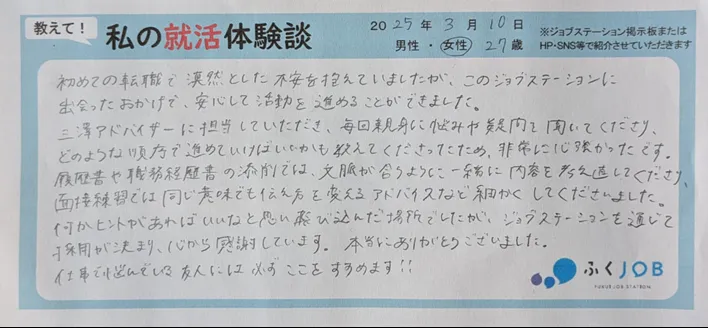 教えて！
私の就活体験談
2025年3月10日
男性・女性 27歳
※ジョブステーション掲示板または
HP・SNS等で紹介させていただきます
初めての転職で漠然とした不安を抱えていましたが、このジョブステーションに
出会ったおかげで、安心して活動を進めることができました。
三澤アドバイザーに担当していただき、毎回親身に悩みや疑問を聞いてくださり、
どのような順序で進めていけばいいかも教えてくださったため、非常に心強かったです。
履歴書や職務経歴書の添削では、文脈が合うように一緒に内容を考え直してくださり、
面接練習では同じ意味でも伝え方を変えるアドバイスなど細かくしてくださいました。
何かヒントがあればいいなと思い飛び込んだ場所でしたが、ジョブステーションを通じて
採用が決まり、心から感謝しています。本当にありがとうございました。
仕事で悩んでいる友人には必ずここをすすめます！！
ふくJOB
FUKUI JOB STATION